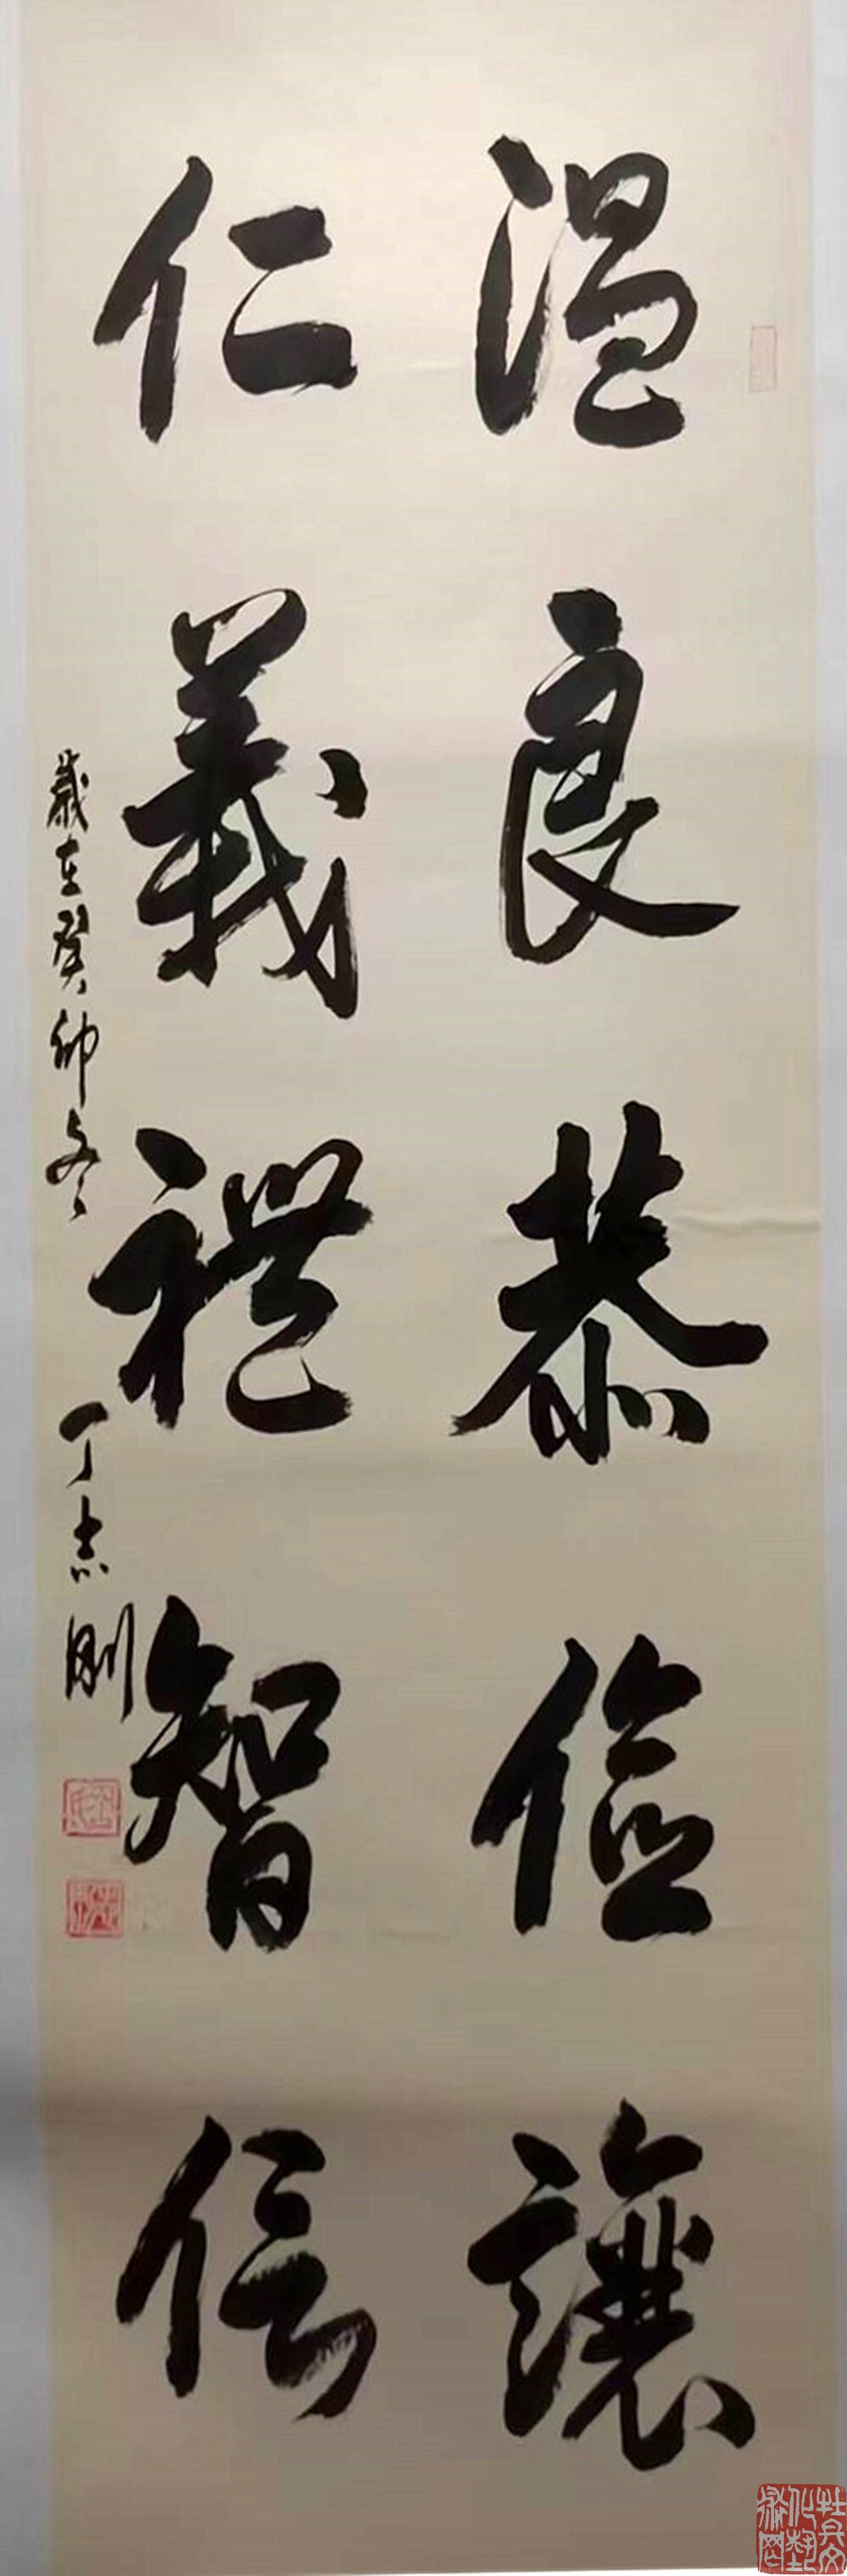 溫良恭儉讓
仁義禮智信
歲在癸卯冬 丁志剛